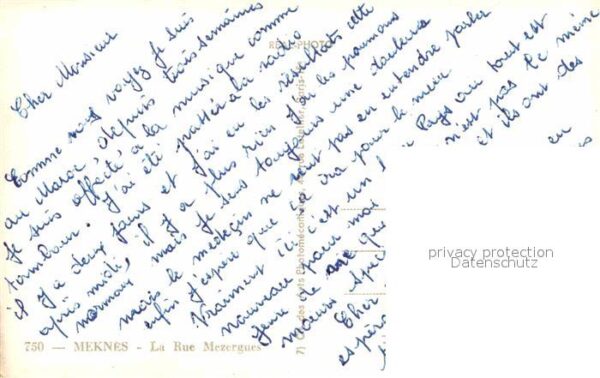 Cher Monsieur
Comme vous voyez je suis
au Maroc depuis trois semaines
Je suis affecté à la musique comme
tambour. J'ai été passer à la radio
il y a deux jours et j'ai eu les résultats cette
après midi, il y a plus rien j'ai les poumons
normaux, mais je sens toujours une douleur
mais le medeçin ne veut pas en entendre parler
enfin j'espère que ça ira pour le mieu
Vraiment ici c'est un Pays ou tout est
nouveau pour moi n'est pas le même
genre de que et ils ont des
moeurs en
Cher
espère
RÉEL-PHOTO
750 — MEKNÈS - La Rue Mezergues
privacy protection
Datenschutz